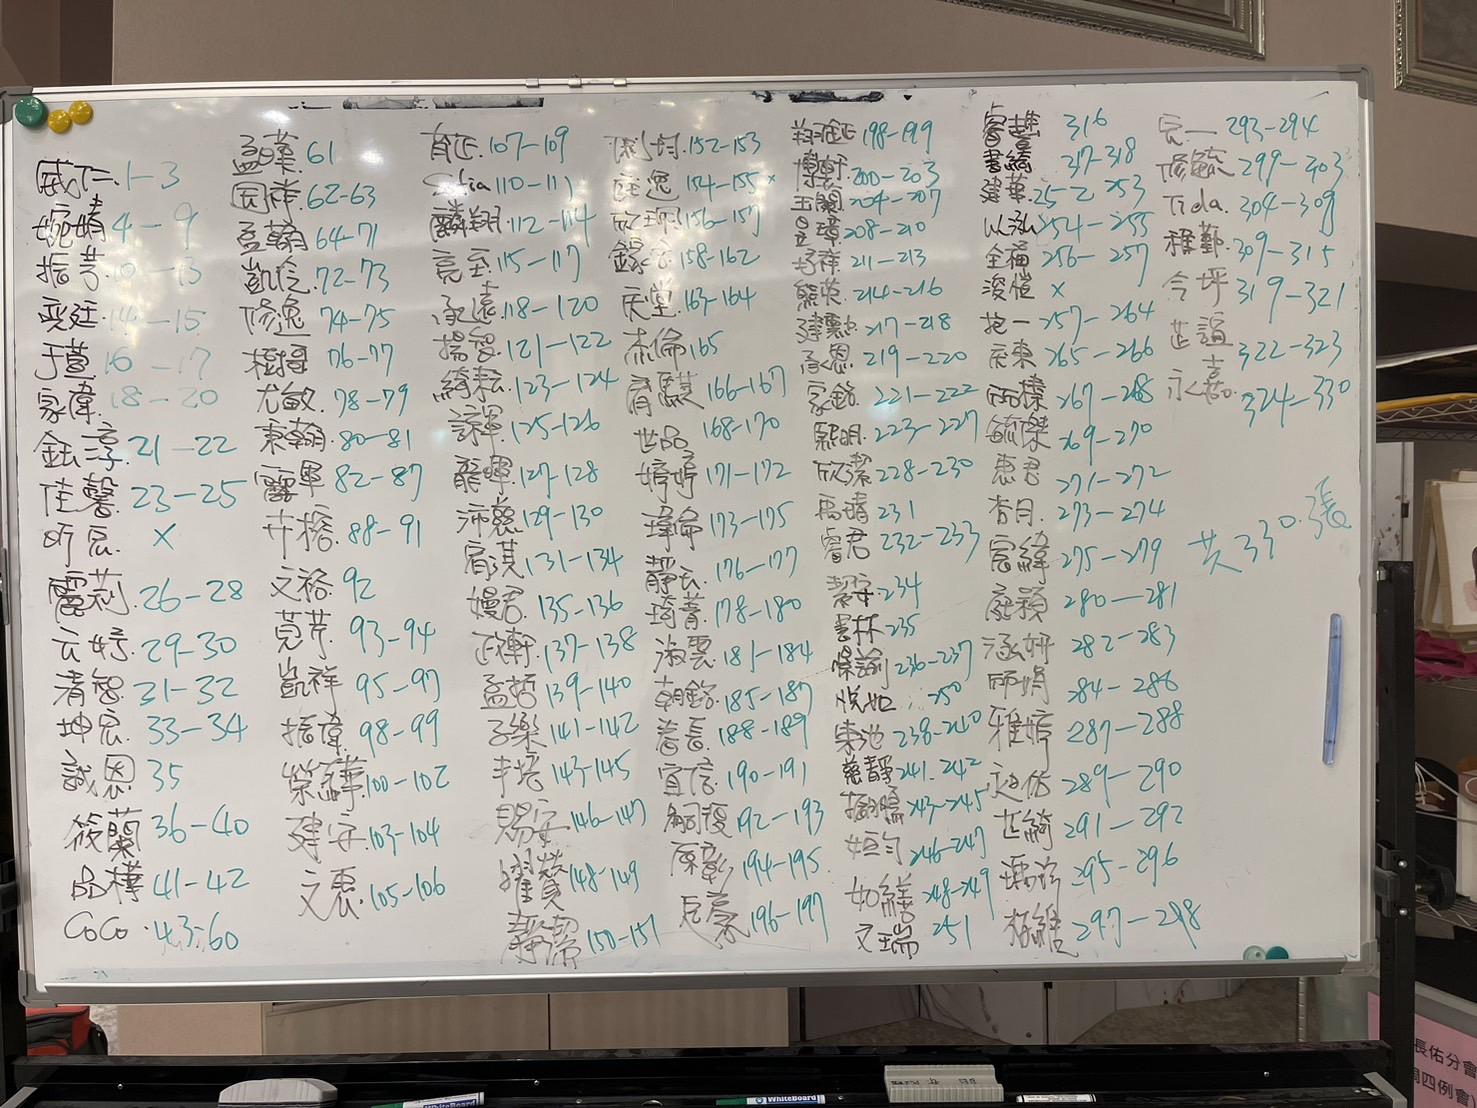 威仁 1-3
婉婧 4-9
振芳 10-13
奕廷 14-15
于萱 16-17
家偉 18-20
鈺淳 21-22
佳馨 23-25
昕宸 X
麗莉 26-28
云婷 29-30
清智 31-32
坤宏 33-34
誠恩 35
筱蘭 36-40
品樺 41-42
CoCo 43-60
孟葉 61
国祥 62-63
孟翰 64-71
凱伶 72-73
修逸 74-75
樹哥 76-77
尤敏 78-79
東翰 80-81
霈軍 82-87
卉榕 88-91
文裕 92
莞芹 93-94
凱祥 95-97
振偉 98-99
榮鏵 100-102
建安 103-104
文惠 105-106
育正 107-109
110-111
麟翔 112-114
亮至 115-117
承遠 118-120
揚智 121-122
綺耘 123-124
諱軍 125-126
龍暉 127-128
沛慈 129-130
宥淇 131-134
嫚君 135-136
政軒 137-138
孟哲 139-140
子樂 141-142
丰培 143-145
賜安 146-147
耀贊 148-149
靜潔 150-151
152-153
庭逸 154-155 x
欣珊 156-157
錦宏 158-162
辰堂 163-164
杰倫 165
宥騏 166-167
世品 168-170
婷婷 171-172
瑋倫 173-175
靜云 176-177
琦菁 178-180
淑雲 181-184
朝銘 185-187
善長 188-189
宜信 190-191
嗣復 192-193
原彰 194-195
辰豪 196-197
翔鉦 198-199
博軒 200-203
玉蘭 204-207
昱璋 208-210
好祥 211-213
熊英 214-216
建勳 217-218
承恩 219-220
家銘 221-222
熙明 223-227
欣潔 228-230
禹靖 231
睿君 232-233
潔安 234
書林 235
傑諭 236-237
悅如 250
東池 238-240
慈靜 241.242
振陽 243-245
姮勻 246-247
如繕 248-249
文瑞 251
睿豐 316
書綺 317-318
建華 252 253
以泓 254-255
全福 256-257
浚愷 x
抱一 257-264
辰東 265-266
丽榛 267-268
毓傑 269-270
惠君 271-272
杏月 273-274
宸緯 275-279
庭穎 280-281
涵妍 282-283
師娟 284-286
雅婷 287-288
永佑 289-290
芷綺 291-292
珮診 295-296
栢維 297-298
完一 293-294
修毓 299-303
Tida 304-308
稚勤 309-315
今坪 319-321
芷誼 322-323
永嘉 324-330
共330張
WhiteBoard
WhiteBoard
長佑分會